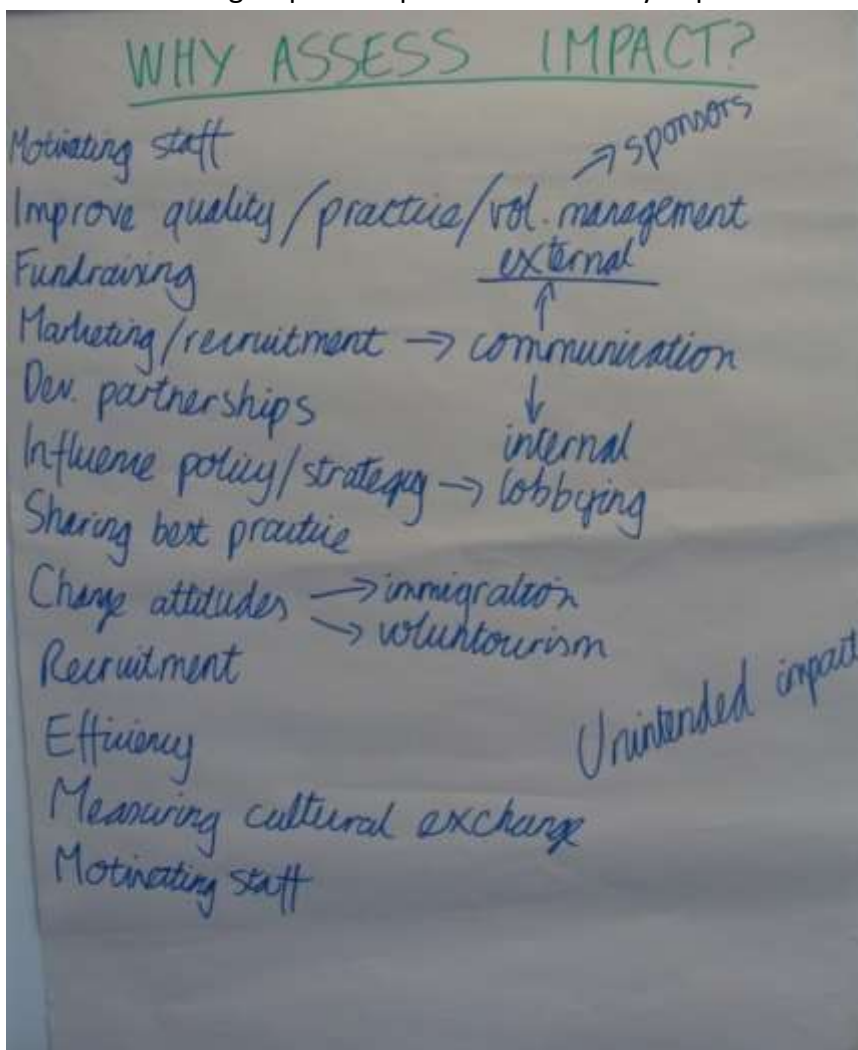 WHY ASSESS IMPACT?
Motivating staff
→ sponsors
Improve quality/practice/vol. management
Fundraising
external
Marketing/recruitment → communication
Dev. partnerships
internal
Influence policy/strategy → lobbying
Sharing best practice
Change attitudes → immigration
→ voluntourism
Recruitment
Efficiency
Unintended impact
Measuring cultural exchange
Motivating staff